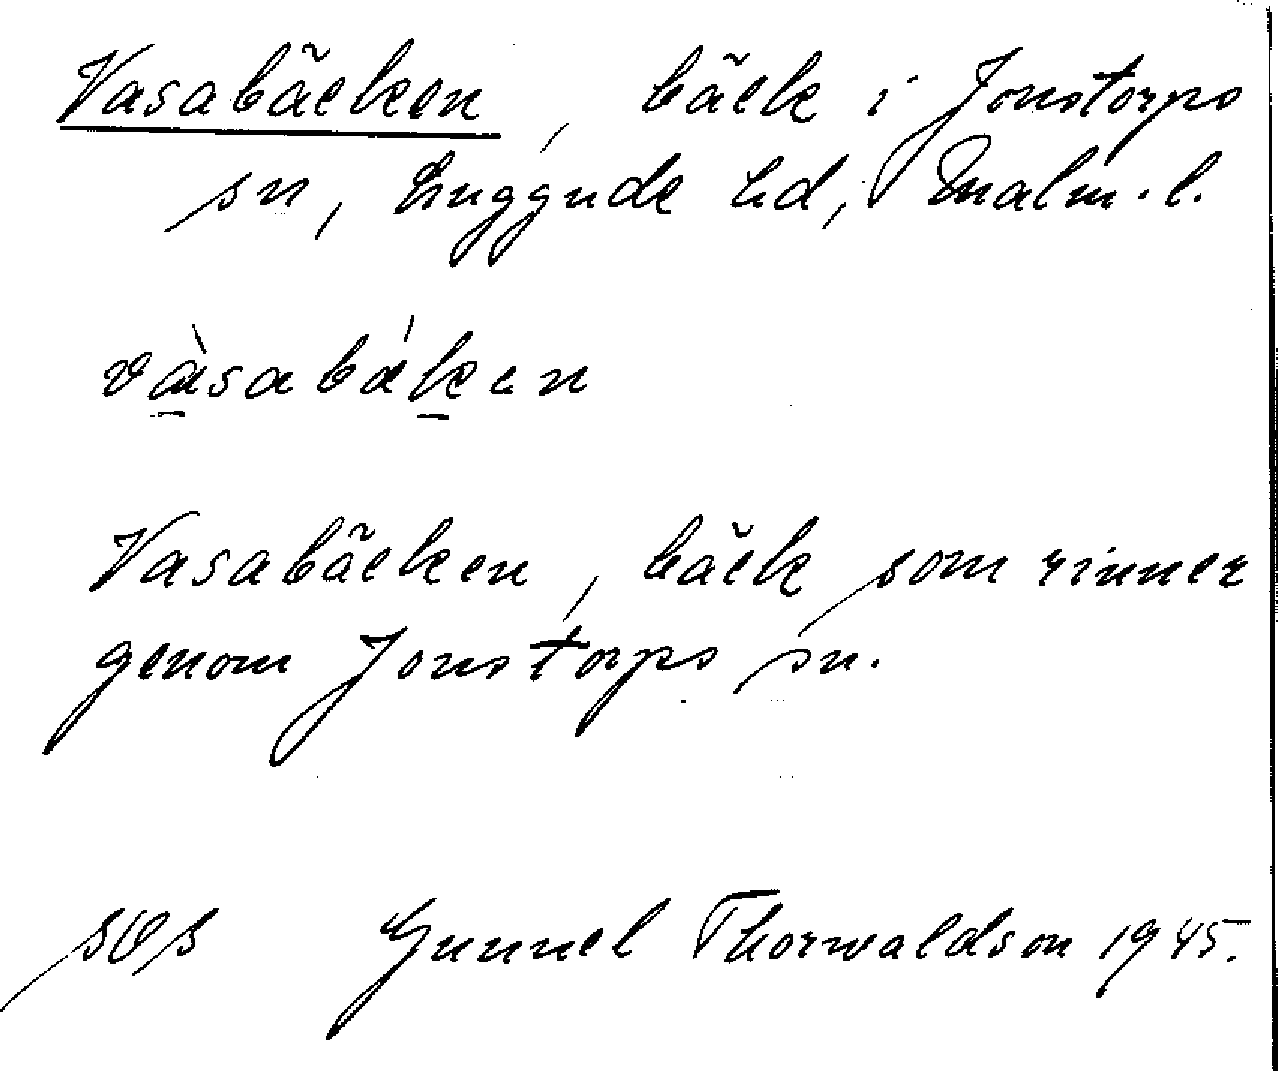 Vasabäcken, bäck i Jonstorps
sn, Luggude hd, Malm. l.
vàsabáken
Vasabäcken, bäck som rinner
genom Jonstorps sn.
sOs Gunnel Thorwaldson 1945.